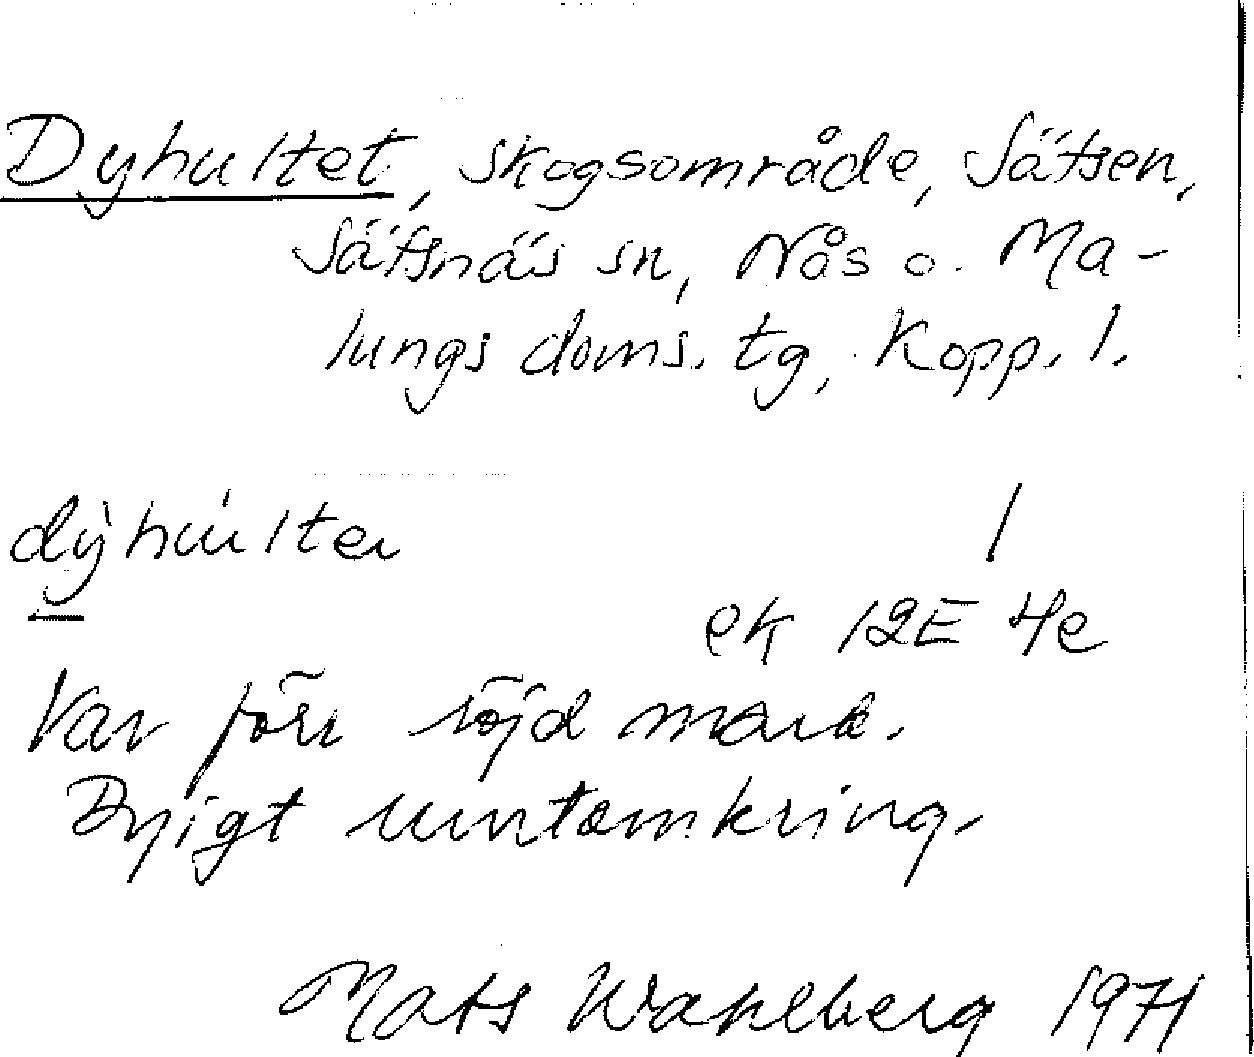 Dyhultet, skogsområde, Sätsen,
Säfsnäs sn, Nås o. Ma-
lungs doms. tg, Kopp. l.
dỳ̱hùlter
/
ek 12E 4e
Var förr röjd mark.
Dyigt runtomkring.
Mats Wahlberg 1971